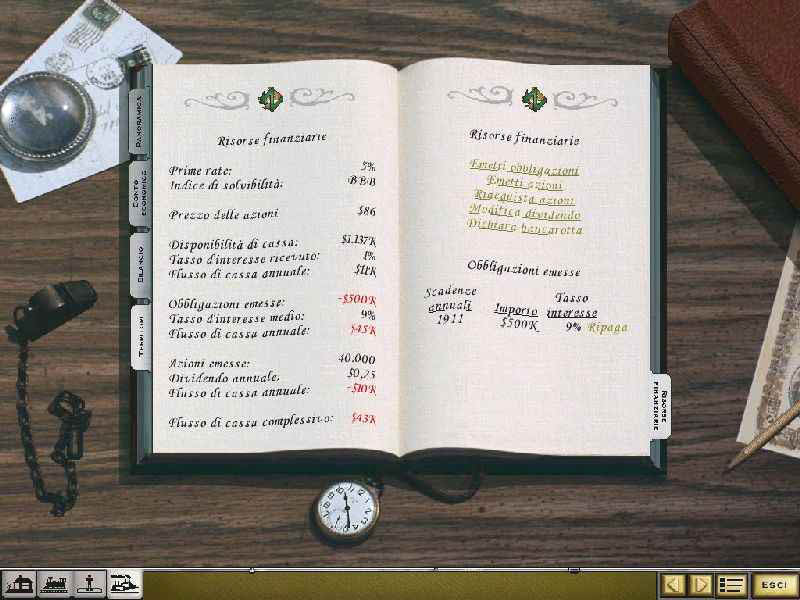 PANORAMICA
CONTO ECONOMICO
BILANCIO
Risorse finanziarie
Prime rate: 5%
Indice di solvibilità: BBB
Prezzo delle azioni $86
Disponibilità di cassa: $1.137K
Tasso d'interesse ricevuto: 1%
Flusso di cassa annuale: $11K
Obbligazioni emesse: -$500K
Tasso d'interesse medio: 9%
Flusso di cassa annuale: $45K
Azioni emesse: 40.000
Dividendo annuale: $0,25
Flusso di cassa annuale: -$10K
Flusso di cassa complessivo: $43K
Risorse finanziarie
Emetti obbligazioni
Emetti azioni
Riacquista azioni
Modifica dividendo
Dichiara bancarotta
Obbligazioni emesse
Scadenze annuali Importo Tasso interesse
1911 $500K 9% Ripaga
RISORSE FINANZIARIE
ESCI